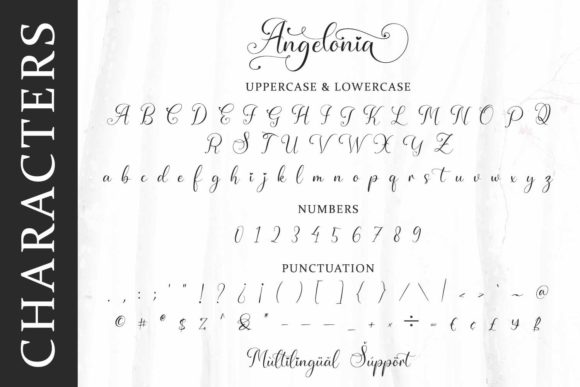 CHARACTERS
Angelonia
UPPERCASE & LOWERCASE
A B C D E F G H I J K L M N O P Q
R S T U V W X Y Z
a b c d e f g h i j k l m n o p q r s t u v w x y z
NUMBERS
0 1 2 3 4 5 6 7 8 9
PUNCTUATION
. , : ; ' " ! ? ¿ ¡ ( ) [ ] { } / \ | < > ` ~ @
© # ® $ % ^ & * – — _ + × ÷ = € ¢ £ ₤
Mùltilingüàl Sùppört